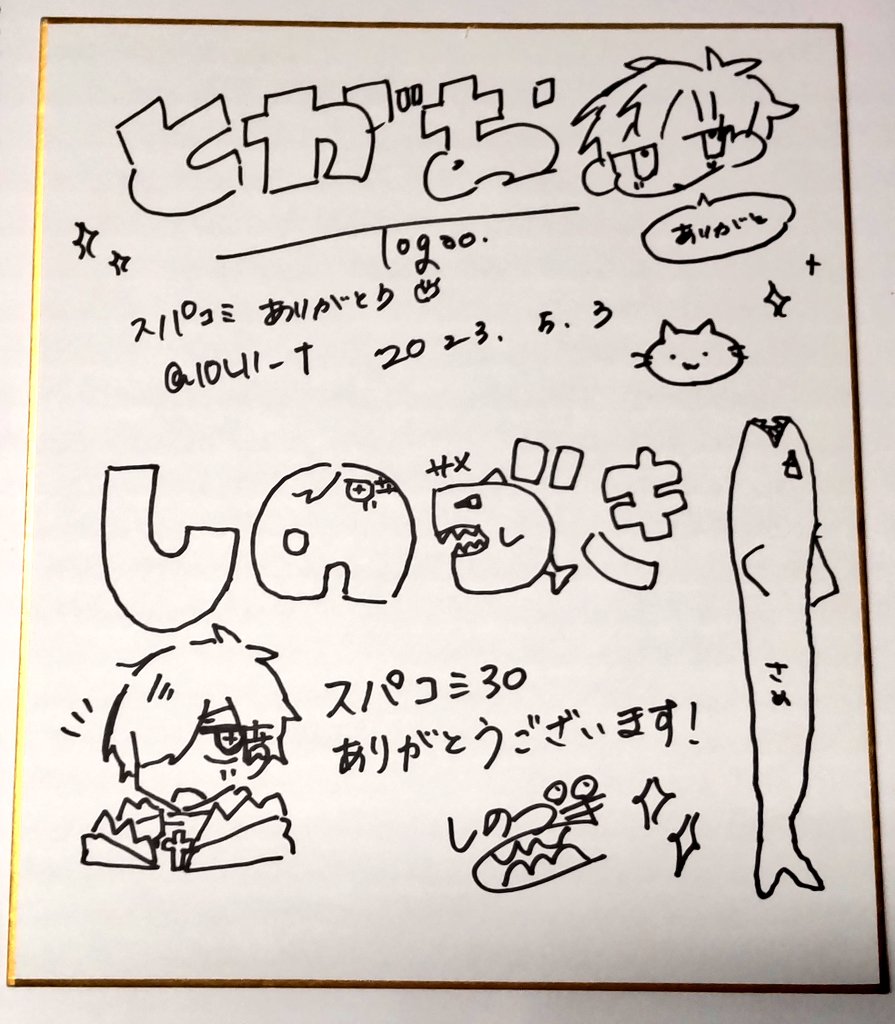 とがお
ありがと
logoo.
スパコミ ありがとう
@1041_† 2023. 5. 3
しのづき
サメ
さめ
スパコミ30
ありがとうございます!
しの